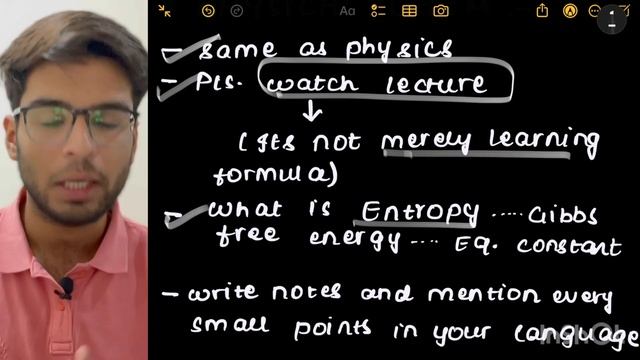 Aa
1
- same as physics
- Pls. watch lecture
↓
(Its not merely learning
formula)
- what is Entropy .... Gibbs
free energy .... Eq. constant
- write notes and mention every
small points in your language